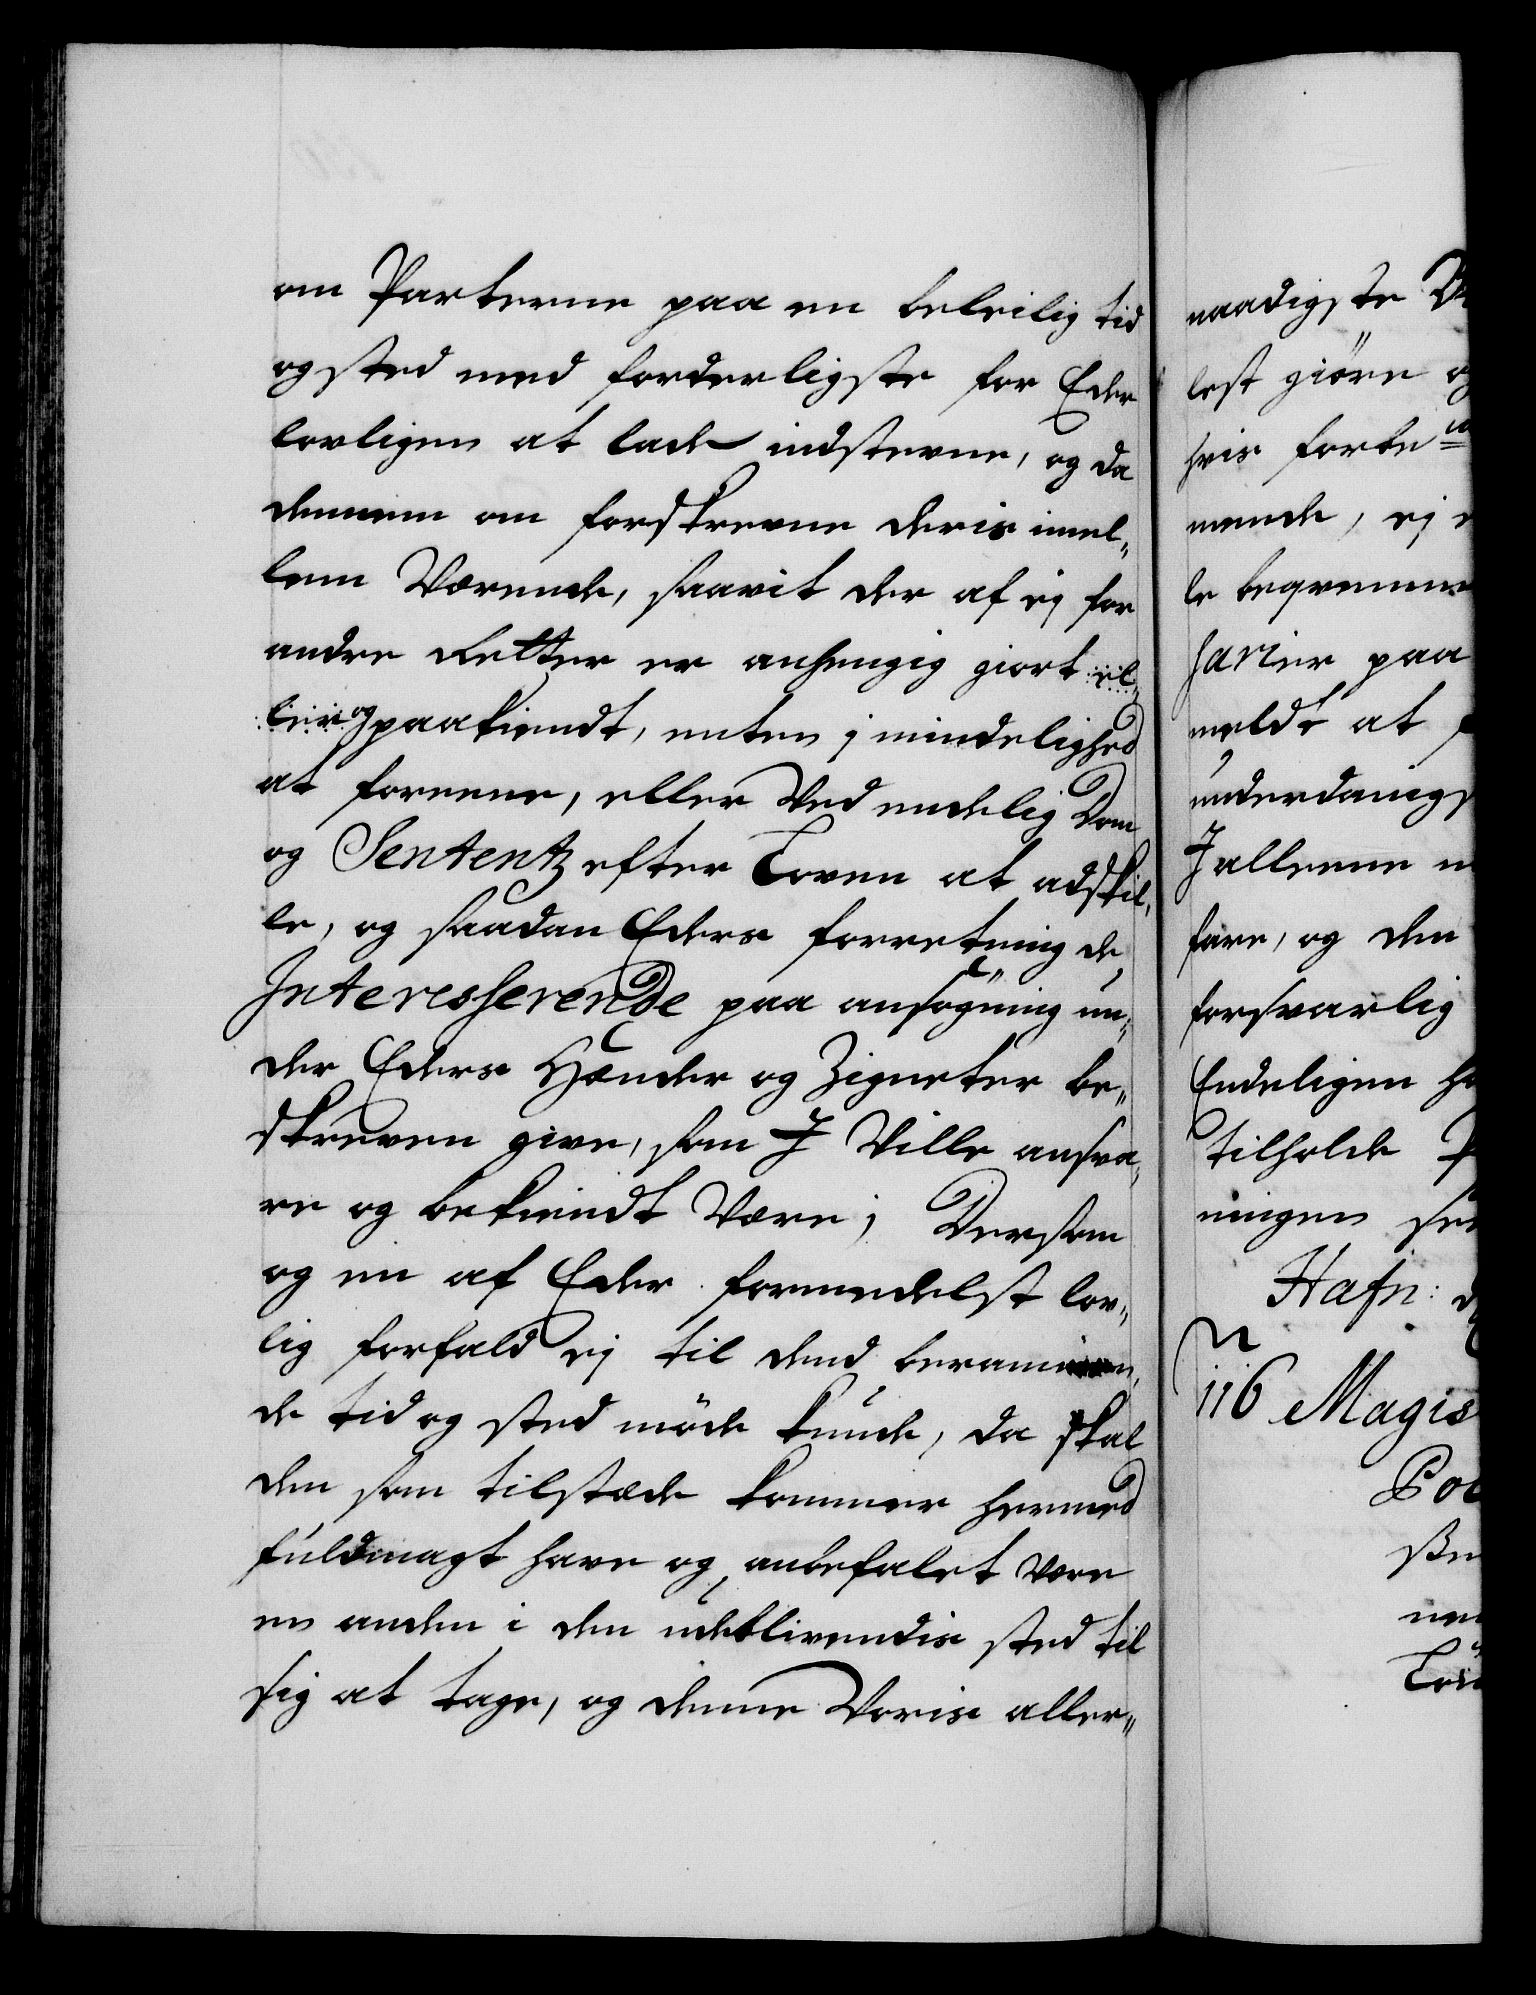 om Parterne paa en beleilig tid
og sted med forderligste for Eder
lovligen at lade indstevne, og da
dennem om forskrevne deris imel„
lem Værende, saavit der af ej for
andre Retter er anhengig giort el„
ler og paakiendt, enten i mindelighed
at foreene, eller Ved endelig Dom
og Sententz efter Loven at adskil„
le, og saadan Eders forretning de
Interesserende paa ansøgning un„
der Eders Hænder og Zigneter be„
skreven give, som I Ville ansva„
re og bekiendt Være; Dersom
og en af Eder formedelst lov„
lig forfald ej til dend beramme„
de tid og sted møde kunde, da skal
den som tilstæde kommer hermed
fuldmagt have og anbefalet være
en anden i den udeblivendis sted til
sig at tage, og denne Voris aller„
naadigste
lest giöre og
hvis forbe
mende, ej
le beqvemme
harier paa
meldt at
underdanigs
I alleene
fare, og den
forsvarlig
Endeligen
tilholde
ningen
Hafn:
116 Magis
Poe